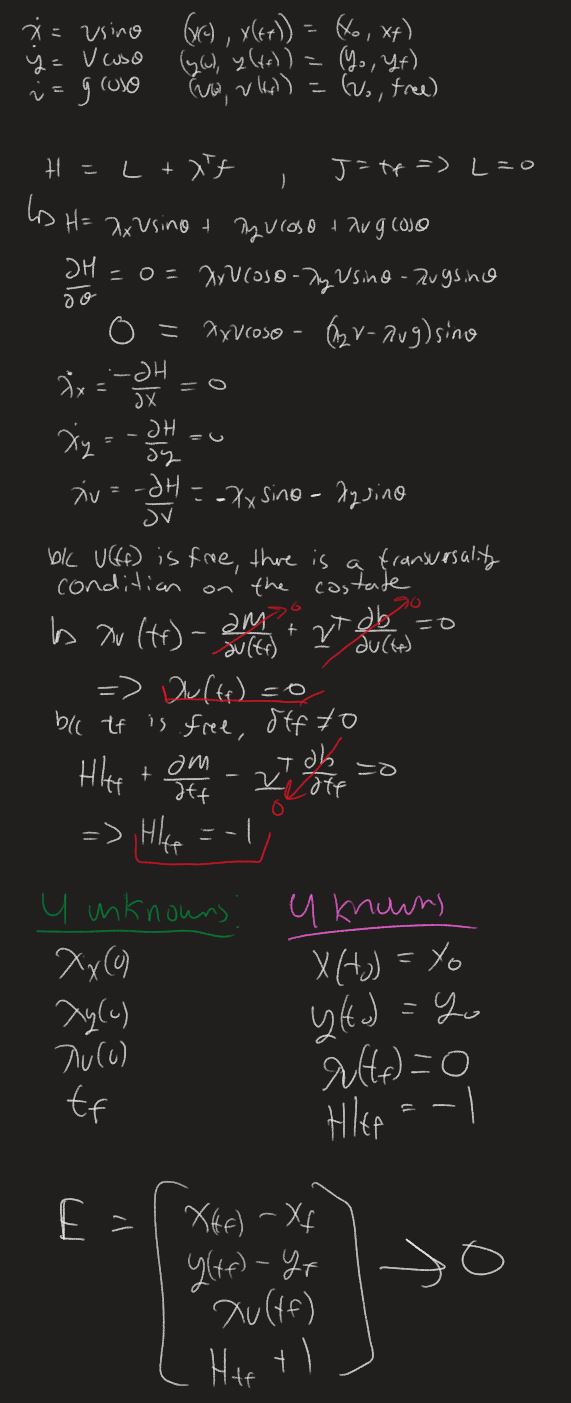 ẋ = v sinθ (x(0), x(tf)) = (x₀, xf)
ẏ = v cosθ (y(0), y(tf)) = (y₀, yf)
v̇ = g cosθ (v(0), v(tf)) = (v₀, free)
H = L + λᵀf , J = tf => L = 0
↳ H = λx v sinθ + λy v cosθ + λv g cosθ
∂H/∂θ = 0 = λx v cosθ - λy v sinθ - λv g sinθ
0 = λx v cosθ - (λy v - λv g) sinθ
λ̇x = -∂H/∂x = 0
λ̇y = -∂H/∂y = 0
λ̇v = -∂H/∂v = -λx sinθ - λy sinθ
b/c v(tf) is free, thre is a transversality
condition on the costate
↳ λv(tf) - ∂M/∂v(tf) + νᵀ ∂b/∂v(tf) = 0
0 0
=> λv(tf) = 0
b/c tf is free, δtf ≠ 0
H|tf + ∂M/∂tf - νᵀ ∂b/∂tf = 0
0
=> H|tf = -1
4 unknowns: 4 knowns
λx(0) x(t₀) = x₀
λy(0) y(t₀) = y₀
λv(0) λv(tf) = 0
tf H|tf = -1
E = [x(tf) - xf
y(tf) - yf
λv(tf)
Htf + 1] → 0